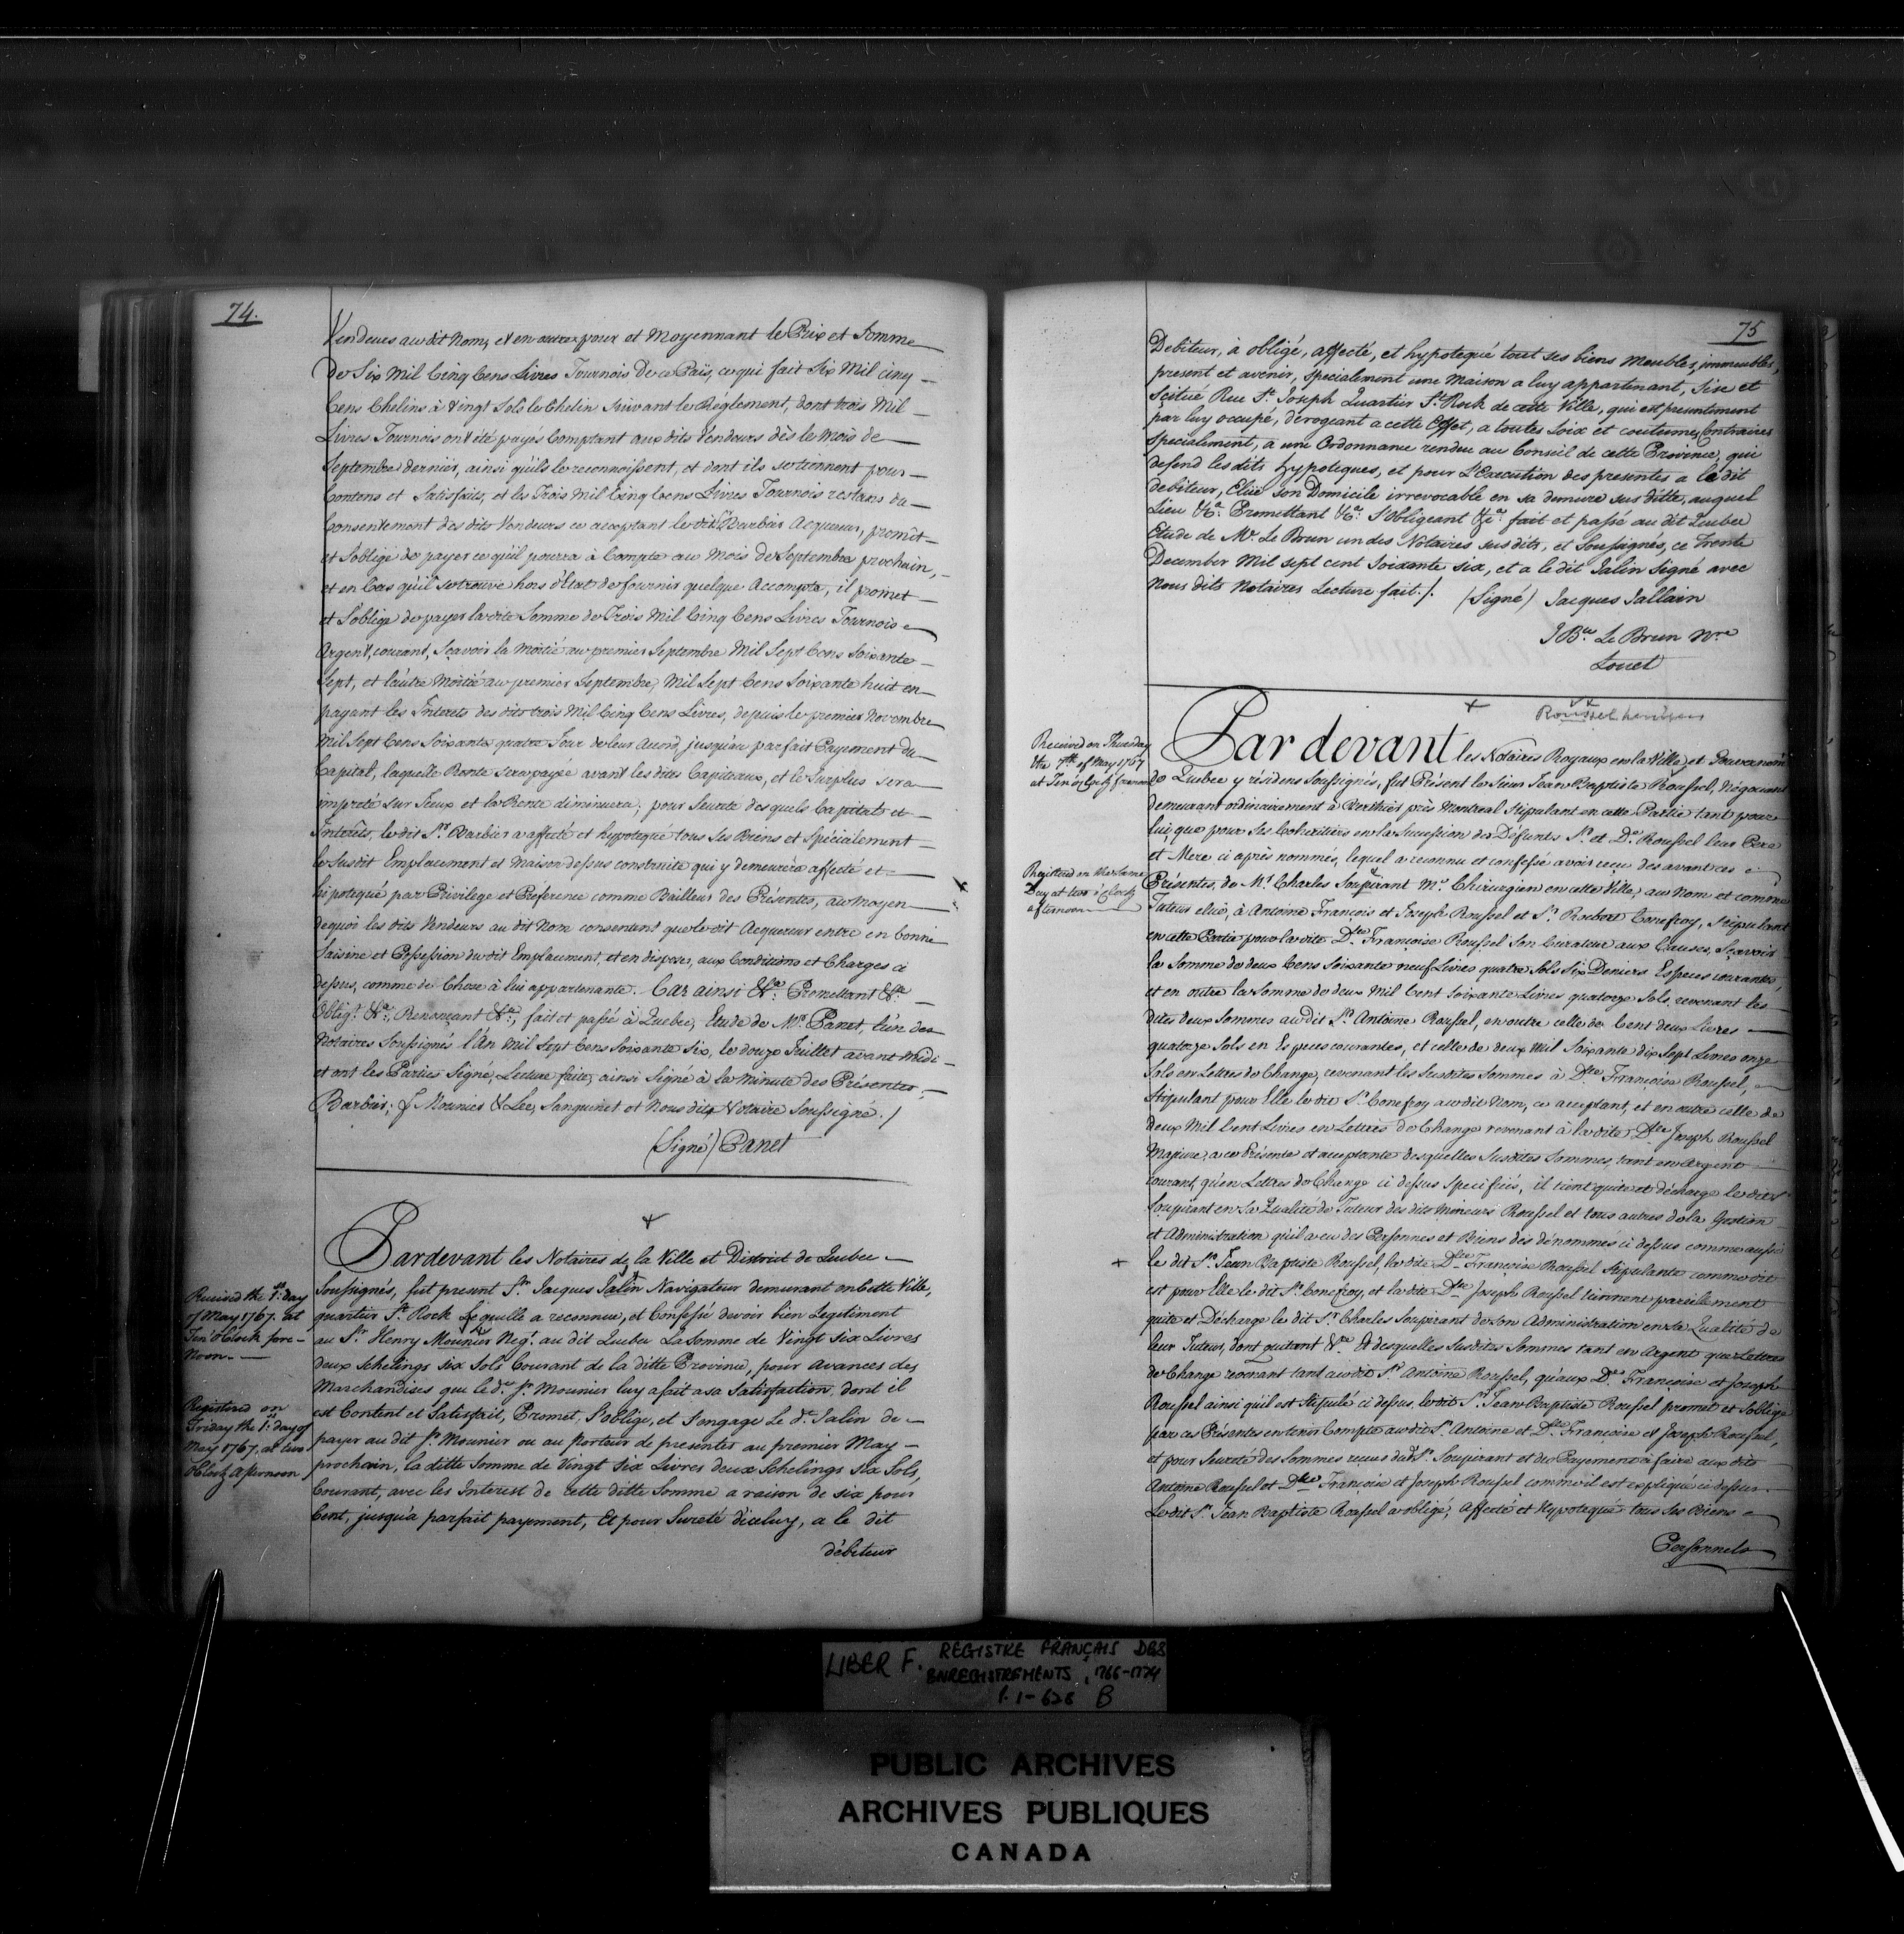 74.
Vendeurs au dit Nom, et en outre pour et Moyennant le Prix et Somme
de Six Mil Cinq Cens Livres Tournois de ce Païs, ce qui fait Six Mil cinq
Cens Chelins à Vingt Sols le Chelin Suivant le Réglement, dont trois Mil
Livres Tournois ont été payés Comptant aux dits Vendeurs dès le Mois de
Septembre dernier, ainsi qu'ils le reconnoissent, et dont ils se tiennent pour
Contens et Satisfaits, et les Trois Mil Cinq Cens Livres Tournois restans du
Consentement des dits Vendeurs ce acceptant le dit Sr. Barbier Acquereur, promit
et S'obligé de payer ce qu'il pourra à Compte au Mois de Septembre prochain,
et en Cas qu'il se trouve hors d'Etat de fournir quelque Accompte, il promet
et S'oblige de payer la dite Somme de Trois Mil Cinq Cens Livres Tournois
Argent, courant, Sçavoir la Moitié au premier Septembre Mil Sept Cens Soixante
Sept, et l'autre Moitié au premier Septembre, Mil Sept Cens Soixante huit en
payant les Interets des dits trois Mil Cinq Cens Livres, depuis le premier Novembre
Mil Sept Cens Soixante quatre Jour de leur Accord, jusqu'au parfait Payement du
Capital, laquelle Rente sera payée avant les dites Capitaux, et le Surplus sera
impreté Sur Jceux et la Rente diminuera; pour Seureté des quels Capitals et
Interêts, le dit Sr. Barbier a affecté et hypotequé tous Ses Biens et Spécialement
le Susdit Emplacement et Maison dessus construite qui y demeurera affecté et
hipotequé par Privilege et Preference comme Bailleur des Présentes, au moyen
dequoi les dits Vendeurs au dit Nom consentent que le dit Acquereur entre en bonne
Saisine et Possession du dit Emplacement, et en dispose, aux Conditions et Charges ci
dessus, comme de Chose à lui appartenante. Car ainsi &ca. Promettant &ca.
Oblig.t &ca. Renonçant &ca., fait et passé à Quebec, Etude de Mr. Panet, l'un des
Notaires Soussignés l'An Mil Sept Cens Soixante Six, le douze Juillet avant Midi
et ont les Parties Signé, Lecture faite, ainsi Signé à la Minute des Présentes,
Barbier; J Mounier & Lee, Sanguinet et Nous dits Notaire Soussigné./
(Signé) Panet
Received the 1st. day
of May 1767. at
Ten O'Clock fore-
Noon.
Registered on
Friday the 1st. day of
May 1767. at two
OClock Afternoon
Pardevant les Notaires de la Ville et District de Quebec
Soussignés, fut present Sr. Jacques Jalin Navigateur demeurant en Cette Ville,
quartier St. Rock Lequelle a reconnue, et Confessé devoir bien Legitiment
au Sr. Henry Mounier Negt. au dit Quebec La Somme de Vingt six Livres
deux Schelings six Sols Courant de la ditte Province, pour avances des
Marchandises que le dt. Sr. Mounier luy a fait a sa Satisfaction dont il
est Content et Satisfait, Promet, S'oblige, et S'engage Le dt. Jalin de
payer au dit Sr. Mounier ou au Porteur de presentes au premier May
prochain, la ditte Somme de Vingt six Livres deux Schelings six Sols,
Courant, avec les Interest de cette ditte Somme a raison de six pour
Cent, jusqu'a parfait payement, Et pour Sureté d'iceluy, a le dit
débiteur
75
Debiteur, à obligé, affecté, et hypotequé tout ses biens Meubles, immeubles,
present et avenir, specialement une Maison a luy appartenant, Sise et
Scitué Rue St. Joseph Quartier St. Rock de cette Ville, qui est presentiment
par luy occupé, dérogeant a cette Effet, a toutes Loix et coutumes Contraires
specialement, a une Ordonnance rendue au Conseil de cette Province, qui
defend les dits hypoteques, et pour L'Execution des presentes a le dit
debiteur, Eliie Son Domicile irrevocable en sa demeure susditte, auquel
Lieu &ca. Promettant &ca. S'Obligeant &ca. fait et passé au dit Quebec
Etude de Mr. Le Brun un des Notaires susdits, et Soussignés, ce Trente
December Mil sept cent Soixante six, et a le dit Jalin Signé avec
Nous dits Notaires Lecture fait./. (Signé) Jacques Jallain
J Bte Le Brun Nre
Louet
Roussel
Received on Thursday
the 7th. of May 1767
at Ten o'Clock forenoon
Registered on the same
Day at two o'Clock
afternoon
Par devant les Notaires Royaux en la Ville et Gouvernemt
de Quebec y résidens Soussignés, fut Présent le Sieur Jean Baptiste Roussel, Négociant
demeurant ordinairement à Berthier près Montreal Stipulant en cette Partie tant pour
lui, que pour ses Coheritiers en la Succession des Défunts Sr. et De. Roussel leur Pere
et Mere ci après nommés, lequel a reconnu et confessé avoir reçu des avant ces
Présentes, de Mr. Charles Soupirant Me. Chirurgien en cette Ville, au Nom et comme
Tuteur eluë, à Antoine François et Joseph Roussel et Sr. Robert Conefroy, Stipulant
en cette Partie pour la dite Dlle. Françoise Roussel Son Curateur aux Causes, Sçavoir
la Somme de deux Cens Soixante neuf Livres quatre Sols Six Deniers Especes courantes,
et en outre la Somme de deux Mil Cent Soixante Livres quatorze Sols, revenant les
dites deux Sommes au dit Sr. Antoine Roussel, en outre celle de Cent deux Livres
quatorze Sols en Especes courantes, et celle de deux Mil Soixante dix Sept Livres onze
Sols en Lettres de Change, revenant les Susdites Sommes à Dlle. Françoise Roussel,
Stipulant pour Elle le dit Sr. Conefroy au dit Nom, ce acceptant, et en outre celle de
deux Mil Cent Livres en Lettres de Change revenant à la dite Dlle. Joseph Roussel
Majeure, a ce Présente et acceptante desquelles Susdites Sommes, tant en Argent
courant, qu'en Lettres de Change ci dessus Specifiées, il tient quite et décharge le dit Sr.
Soupirant en Sa Qualité de Tuteur des dits Mineurs Roussel et tous autres de la Gestion
et Administration qu'il a eu des Personnes et Biens des dénommés ci dessus comme aussi
le dit Sr. Jean Baptiste Roussel, la dite Dlle. Françoise Roussel Stipulante comme dit
est pour Elle le dit Sr. Conefroy, et la dite Dlle. Joseph Roussel tiennent pareillement
quite et Décharge le dit Sr. Charles Soupirant de Son Administration en Sa Qualité de
leur Tuteur, dont quitant &ca. Et desquelles Susdites Sommes tant en Argent que Lettres
de Change revenant tant au dit Sr. Antoine Roussel, qu'aux Dlles. Françoise et Joseph
Roussel ainsi qu'il est Stipulé ci dessus, le dit Sr. Jean Baptiste Roussel promet et S'oblige
par ces Présentes en tenir Compte au dit Sr. Antoine et Dlles. Françoise et Joseph Roussel,
et pour Seureté des Sommes reçues du dt. Sr. Soupirant et du Payement à faire aux dits
Antoine Roussel et Dlles. Françoise et Joseph Roussel comme il est expliqué ci dessus
Le dit Sr. Jean Baptiste Roussel a obligé, affecté et Hypotequé tous Ses Biens
Personnels
LIBER F. REGISTRE FRANÇAIS DES
ENREGISTREMENTS, 1766-1774
P. 1-628 B
PUBLIC ARCHIVES
ARCHIVES PUBLIQUES
CANADA